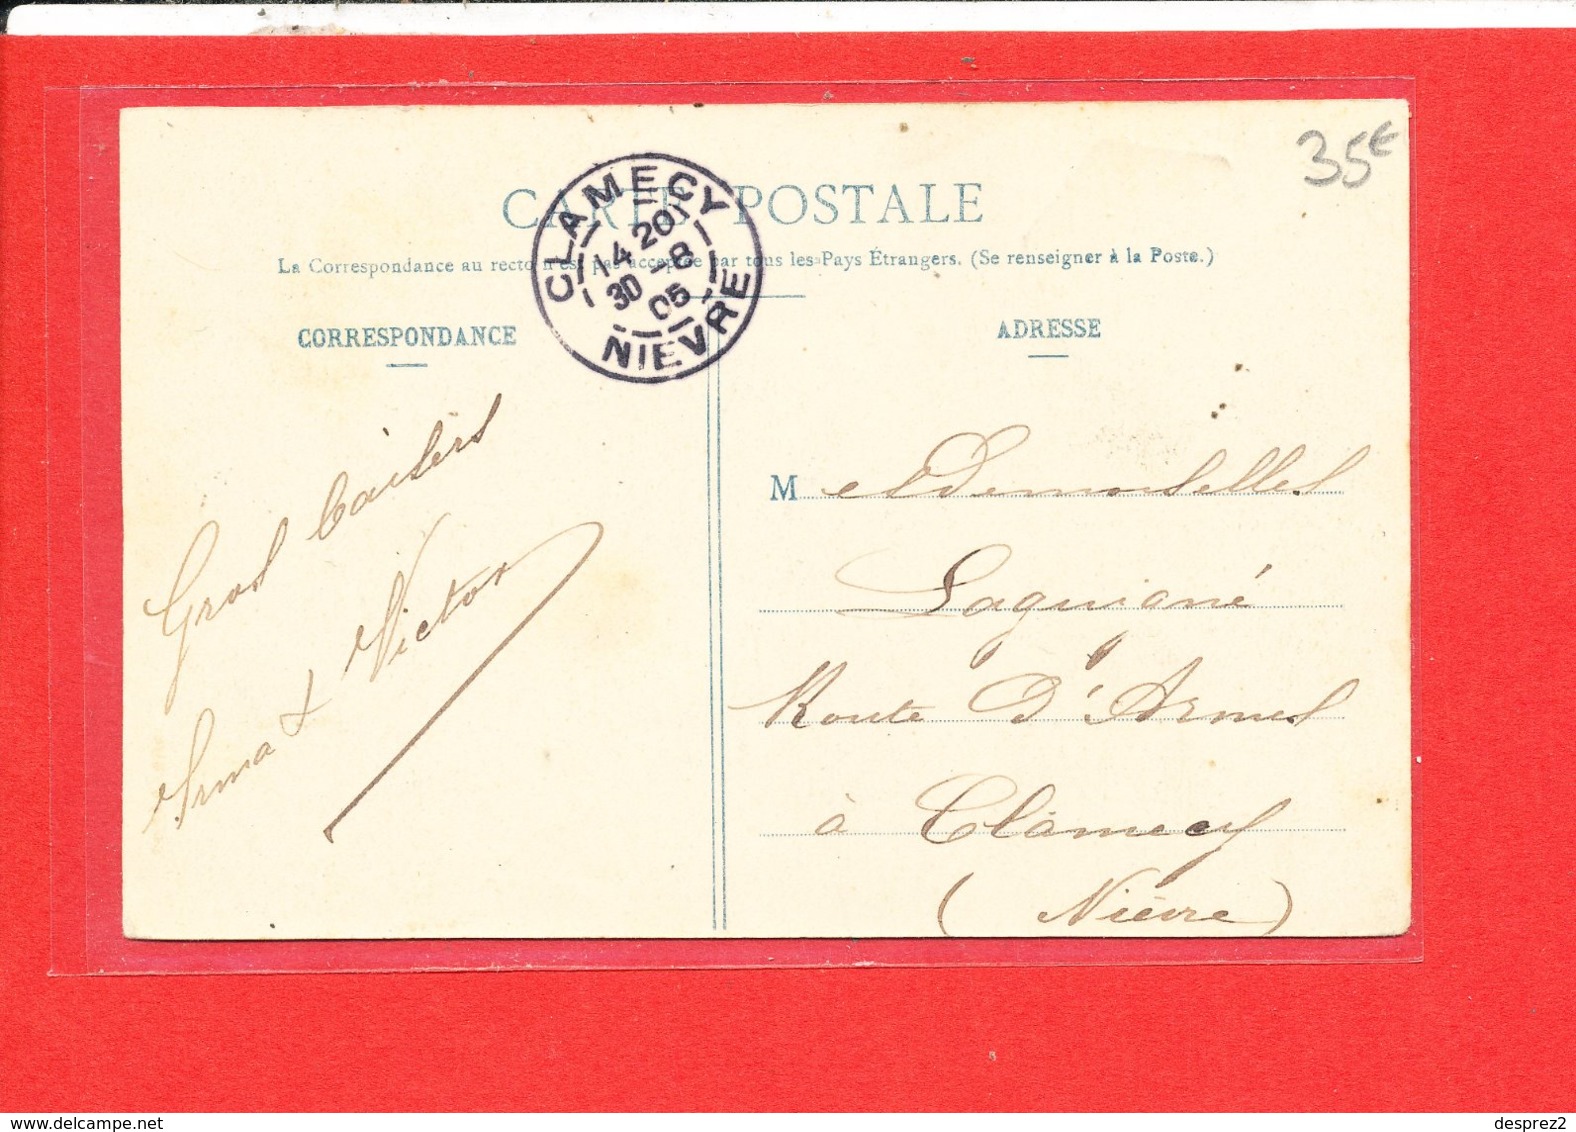 35€
CARTE POSTALE
La Correspondance au recto n'est pas acceptée par tous les Pays Étrangers. (Se renseigner à la Poste.)
CLAMECY
14 20
30 -8
05
NIEVRE
CORRESPONDANCE
Gros baisers
Irma & Victor
ADRESSE
Mesdemoiselles
Laguigné
Route d'Armes
à Clamecy
(Nièvre)
desprez2